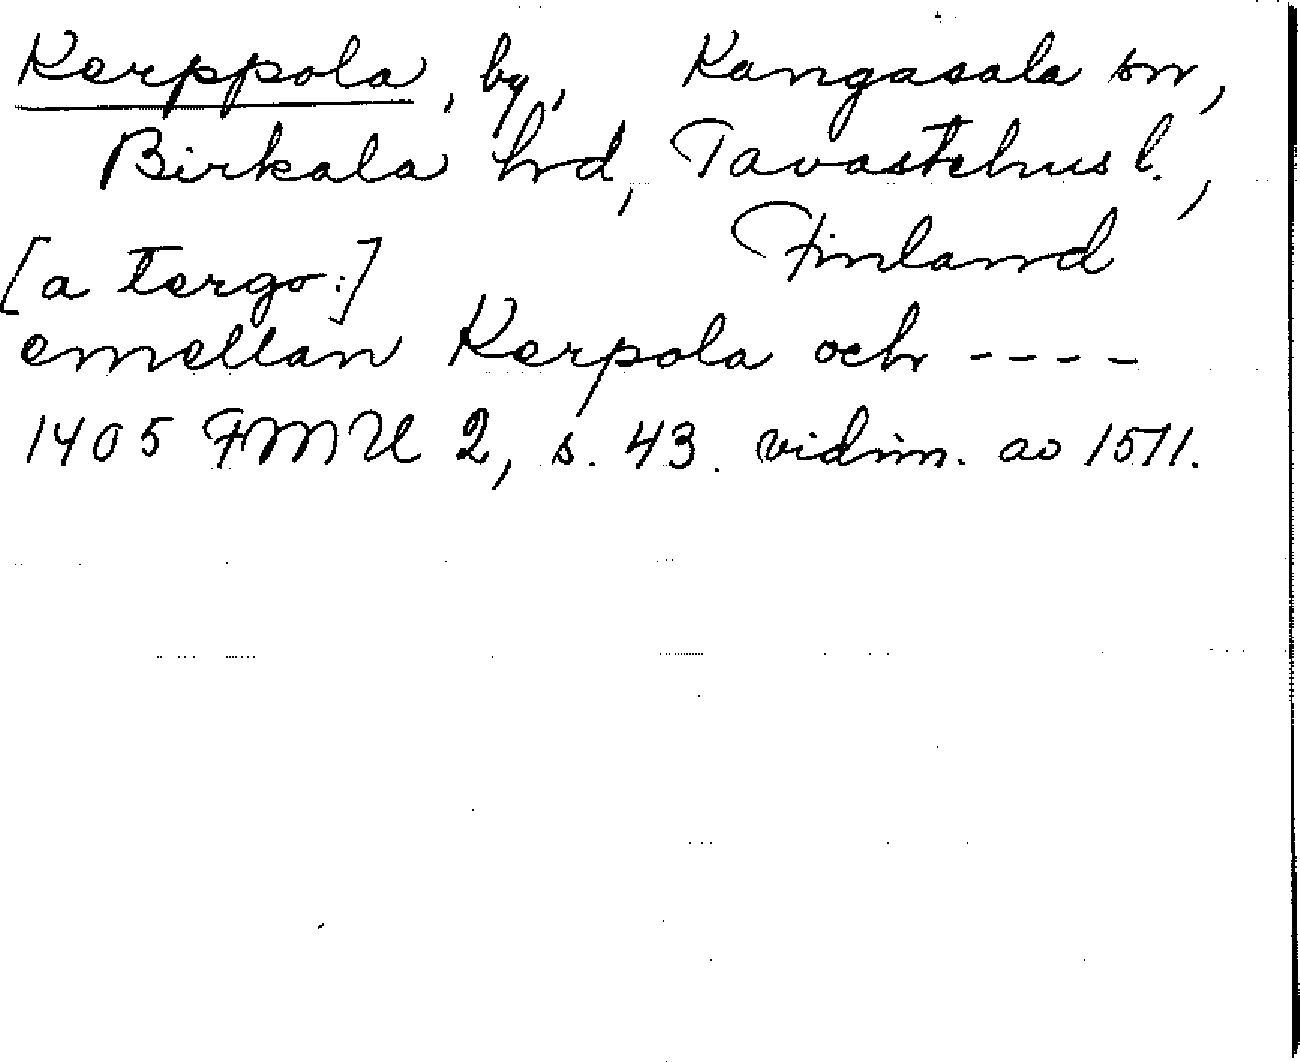 Kerppola, by, Kangasala sn,
Birkala hrd, Tavastehus l.,
Finland
[a tergo:]
emellan Kerpola och ----
1405 FMU 2, s. 43. vidim. av 1511.